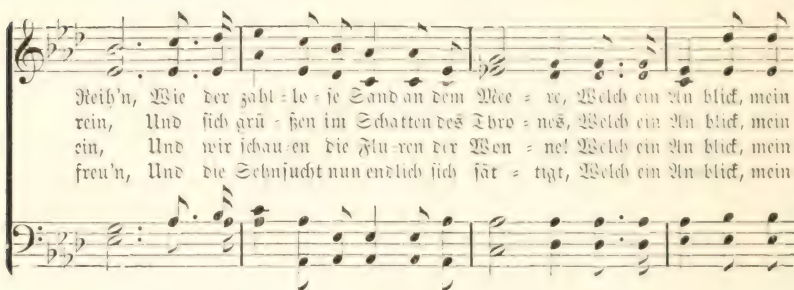 Reih'n, Wie der zahl=lo=se Sand an dem Mee = re, Welch ein An blick, mein
rein, Und sich grü = ßen im Schatten des Thro = nes, Welch ein An blick, mein
ein, Und wir schau=en die Flu=ren der Won = ne! Welch ein An blick, mein
freu'n, Und die Sehnsucht nun endlich sich sät = tigt, Welch ein An blick, mein